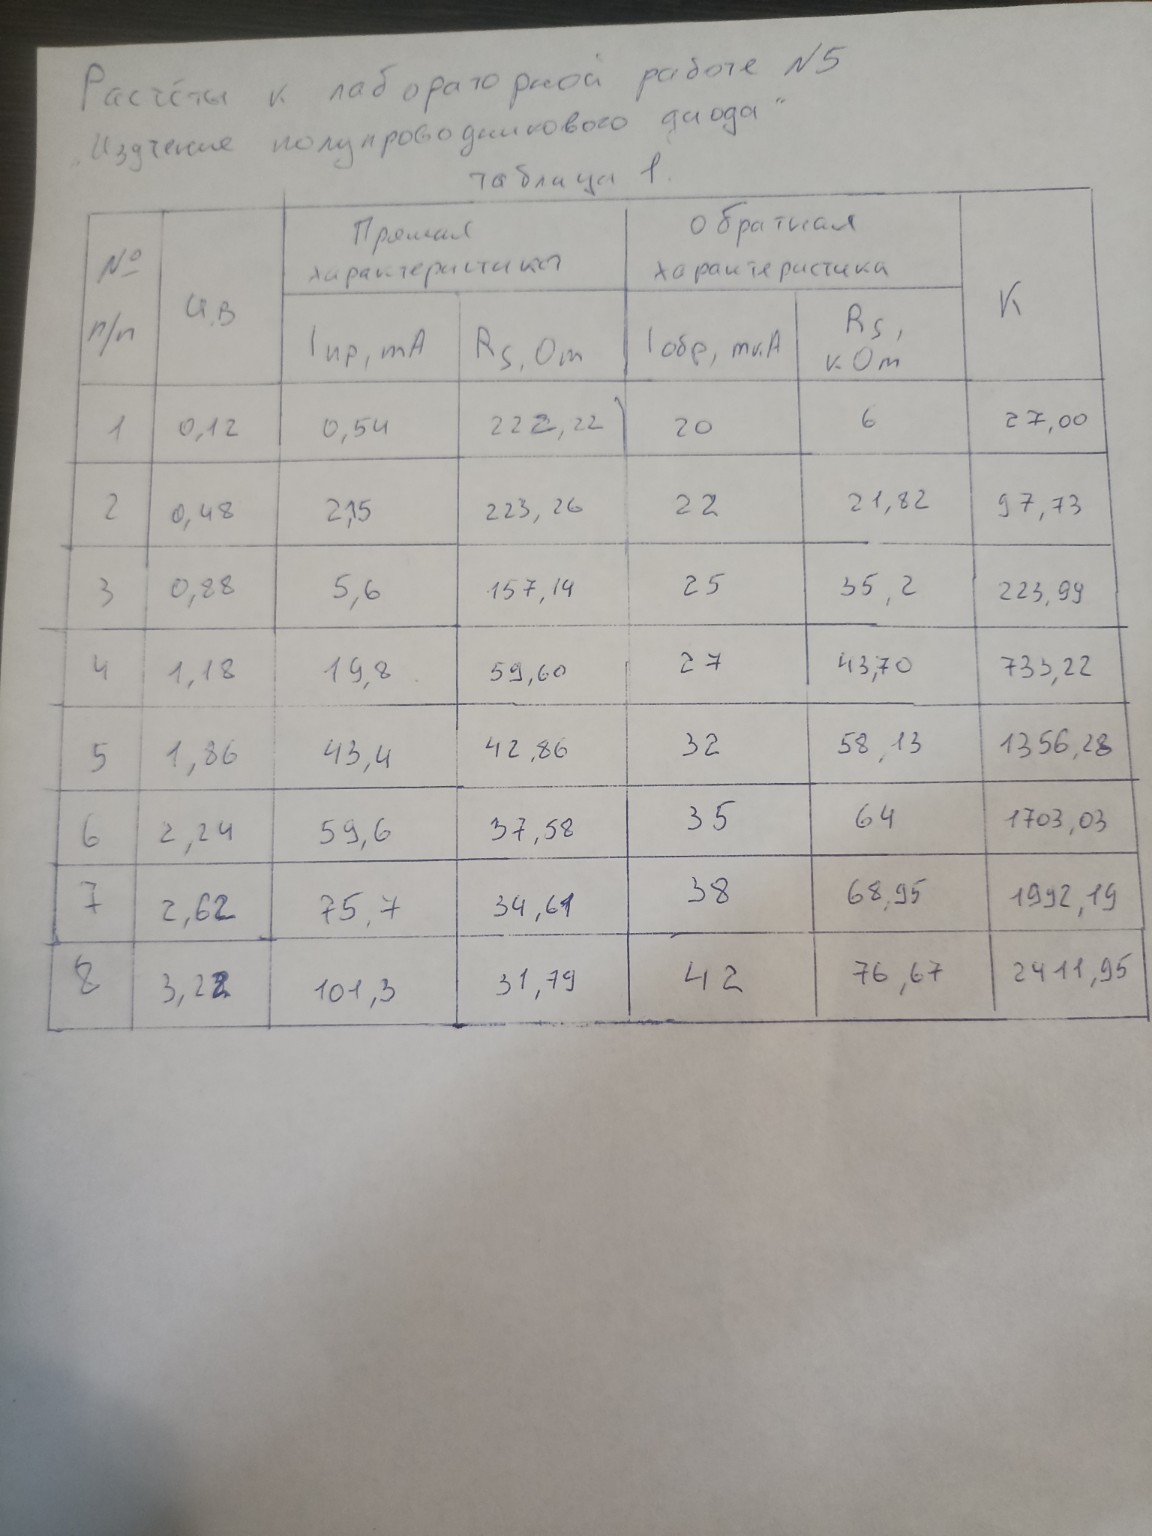 Расчёты к лабораторной работе №5
„Изучение полупроводникового диода"
таблица 1.
№ п/п U,В Прямая характеристика Обратная характеристика K
Iпр, mA Rs, Om Iобр, mкA Rs, кOm
1 0,12 0,54 222,22 20 6 27,00
2 0,48 2,15 223,26 22 21,82 97,73
3 0,88 5,6 157,14 25 35,2 223,99
4 1,18 19,8 59,60 27 43,70 733,22
5 1,86 43,4 42,86 32 58,13 1356,28
6 2,24 59,6 37,58 35 64 1703,03
7 2,62 75,7 34,61 38 68,95 1992,19
8 3,22 101,3 31,79 42 76,67 2411,95